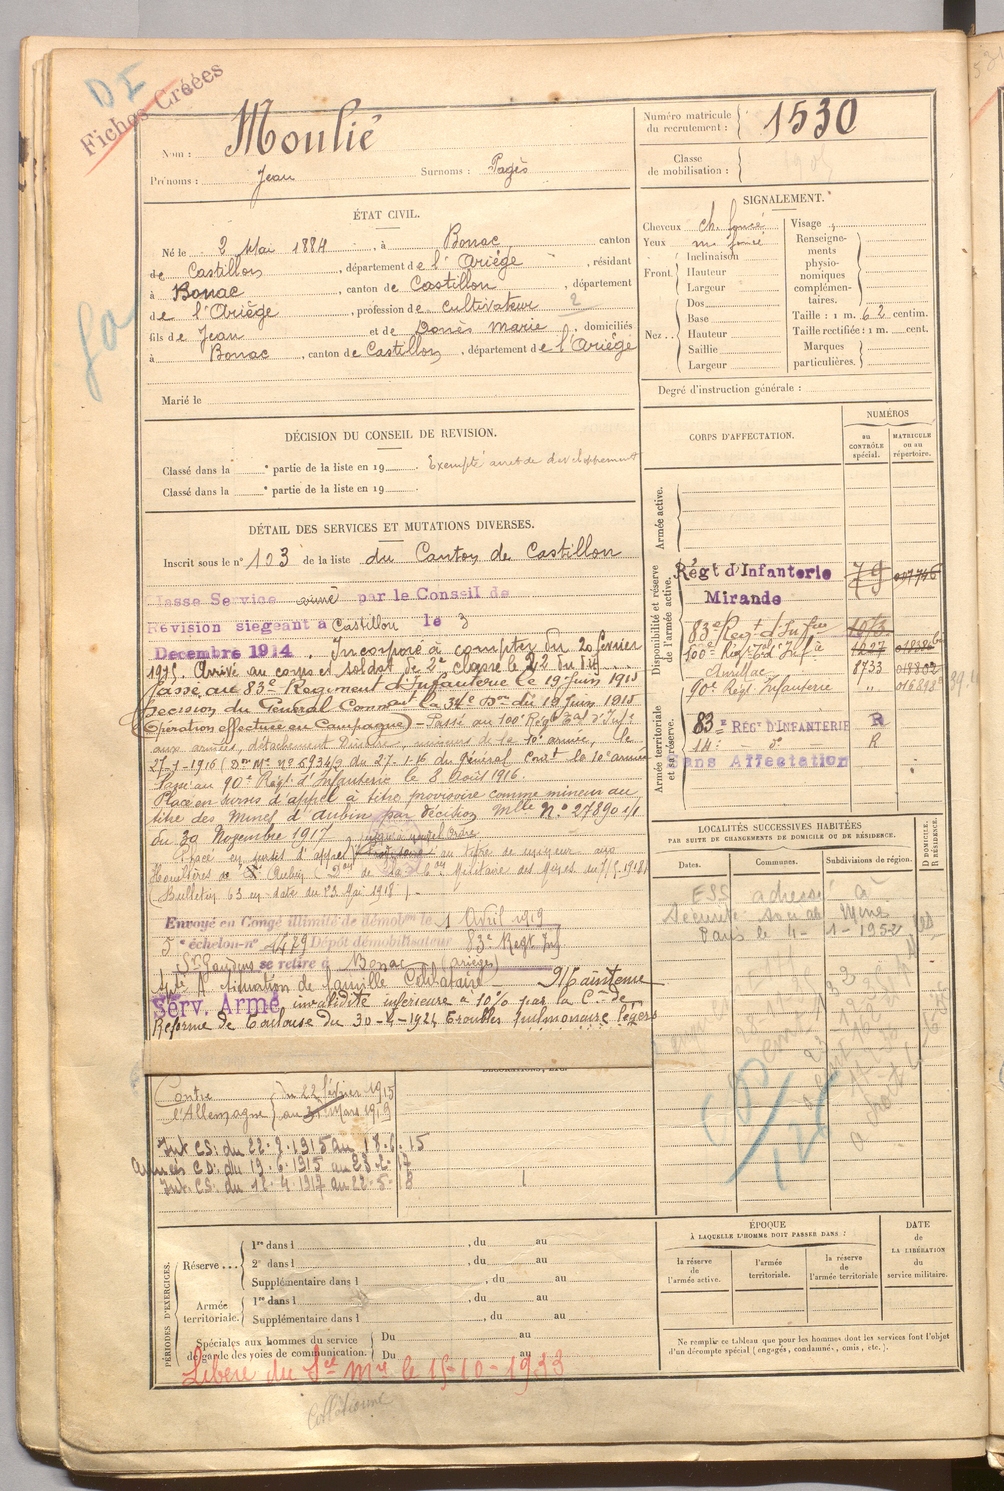 DI
Fiches Créées
Nom : Moulié
Prénoms : Jean Surnoms : Pagès
Numéro matricule du recrutement : 1530
Classe de mobilisation :
ÉTAT CIVIL.
Né le 2 Mai 1884, à Bonac, canton
de Castillon, département de l'Ariège, résidant
à Bonac, canton de Castillon, département
de l'Ariège, profession de cultivateur 2
fils de Jean et de Donès Marie, domiciliés
à Bonac, canton de Castillon, département de l'Ariège
Marié le
DÉCISION DU CONSEIL DE REVISION.
Classé dans la e partie de la liste en 19 . Exempté arret de developpement
Classé dans la e partie de la liste en 19 .
DÉTAIL DES SERVICES ET MUTATIONS DIVERSES.
Inscrit sous le n° 103 de la liste du Canton de Castillon
Classe Service armé par le Conseil de
Révision siegeant à Castillon le 3
Decembre 1914. Incorporé à compter du 20 février
1915. Arrivé au corps et soldat de 2e classe le 22 du dit
Passé au 83e Regiment d'Infanterie le 19 Juin 1915
Decision du Général Commt la 34e Don du 19 Juin 1915
(Opération effectuée en Campagne) - Passé au 100e Régt Eal d'Infie
aux armées, détachement mineurs de la 10e armée, le
27-1-1916 (Don Mle no 6934/3 du 27-1-16 du Général Comt la 10e armée
Passé au 90e Régt d'Infanterie le 8 Août 1916.
Placé en sursis d'appel à titre provisoire comme mineur au
titre des Mines d'Aubin par décision Mlle No 27890 1/1
du 30 Novembre 1917
Placé en sursis d'appel jusqu'à nouvel ordre au titre de mineur aux
Houillères de Aubin
(Bulletin 63 en date du 23 Mai 1918)
Envoyé en Congé illimité de démobon le 1 Avril 1919
5e échelon n° 4479 Dépôt démobilisateur 83e Regt Inf
St Gaudens se retire à Bonac (Ariège)
Situation de famille Célibataire Maintenu
Serv. Armé invalidité inférieure à 10% par la Con de
Réforme de Toulouse du 30-4-1924 Troubles pulmonaires légers
Contre l'Allemagne du 22 février 1915
au 31 Mars 1919
Int. CS. du 22.2.1915 au 18.6.15
Armées CD. du 19.6.1915 au 23.2.17
Int. CS. du 12.4.1917 au 22.5.18
PÉRIODES D'EXERCICES.
Réserve... 1re dans l , du au
2e dans l , du au
Supplémentaire dans l , du au
Armée territoriale. 1re dans l , du au
Supplémentaire dans l , du au
Spéciales aux hommes du service de garde des voies de communication. Du au
Du au
Libéré du Sce Mre le 15-10-1933
SIGNALEMENT.
Cheveux ch. foncé
Yeux m. foncé
Front. Inclinaison
Hauteur
Largeur
Nez.. Dos
Base
Hauteur
Saillie
Largeur
Visage
Renseignements physionomiques complémentaires.
Taille : 1 m. 62 centim.
Taille rectifiée : 1 m. cent.
Marques particulières.
Degré d'instruction générale :
CORPS D'AFFECTATION.
NUMÉROS
au CONTRÔLE spécial.
MATRICULE ou au répertoire.
Armée active.
Disponibilité et réserve de l'armée active.
Régt d'Infanterie 79
Mirande
83e Regt d'Infrie 1073
100e Régt Eal d'Infie 1027
Aurillac 8733
90e Régt Infanterie "
Armée territoriale et sa réserve.
83e RÉGT D'INFANTERIE R
14e do R
Sans Affectation
LOCALITÉS SUCCESSIVES HABITÉES
PAR SUITE DE CHANGEMENTS DE DOMICILE OU DE RÉSIDENCE.
Dates.
Communes.
Subdivisions de région.
D DOMICILE. R RÉSIDENCE.
ESS adressé à
Securité sociale Mine
Paris le 4-1-1952
ÉPOQUE
À LAQUELLE L'HOMME DOIT PASSER DANS :
la réserve de l'armée active.
l'armée territoriale.
la réserve de l'armée territoriale
DATE de LA LIBÉRATION du service militaire.
Ne remplir ce tableau que pour les hommes dont les services font l'objet
d'un décompte spécial (engagés, condamnés, omis, etc.).